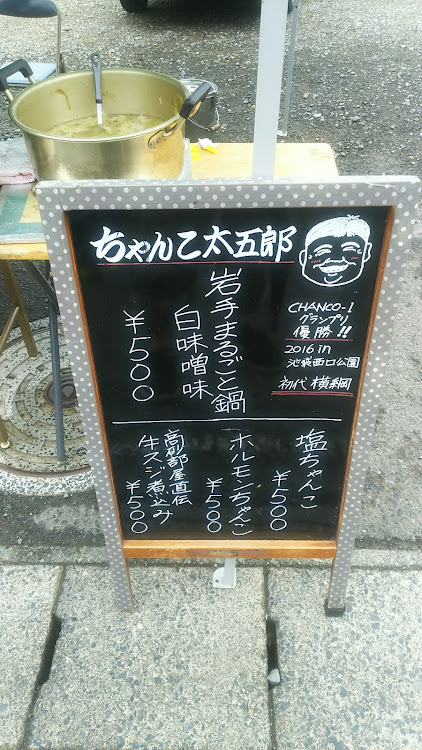 ちゃんこ太五郎
CHANCO-1
グランプリ
優勝!!
2016 in
池袋西口公園
初代 横綱
岩手まるごと鍋
白味噌味
¥500
塩ちゃんこ
¥500
ホルモンちゃんこ
¥500
高砂部屋直伝
牛スジ煮込み
¥500